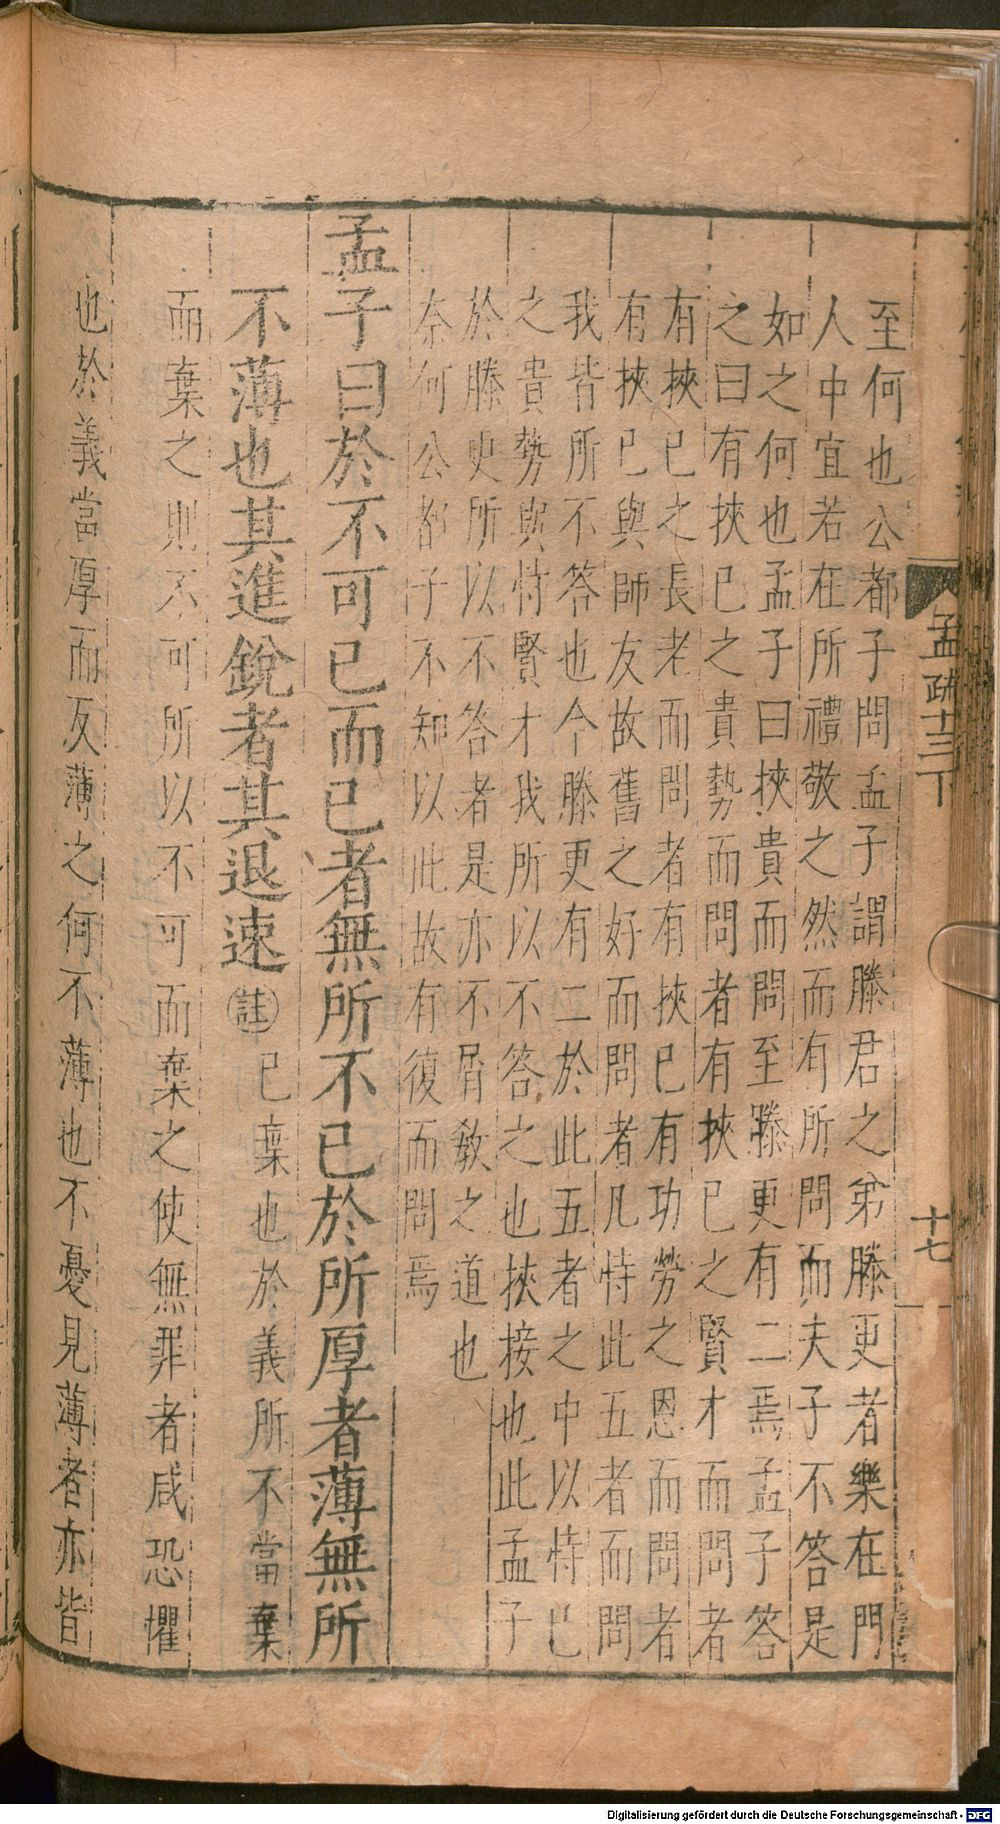 孟疏十三下
十七
至何也公都子問孟子謂滕君之弟滕更者樂在門
人中宜若在所禮敬之然而有所問而夫子不答是
如之何也孟子曰挾貴而問至滕更有二焉孟子答
之曰有挾已之貴勢而問者有挾已之賢才而問者
有挾已之長老而問者有挾已有功勞之恩而問者
有挾已與師友故舊之好而問者凡恃此五者而問
我皆所不答也今滕更有二於此五者之中以恃已
之貴勢與恃賢才我所以不答之也挾接也此孟子
於滕史所以不答者是亦不屑敎之道也
奈何公都子不知以此故有復而問焉
孟子曰於不可已而已者無所不已於所厚者薄無所
不薄也其進銳者其退速 註 已棄也於義所不當棄
而棄之則不可所以不可而棄之使無罪者咸恐懼
也於義當厚而反薄之何不薄也不憂見薄者亦皆
Digitalisierung gefördert durch die Deutsche Forschungsgemeinschaft - DFG